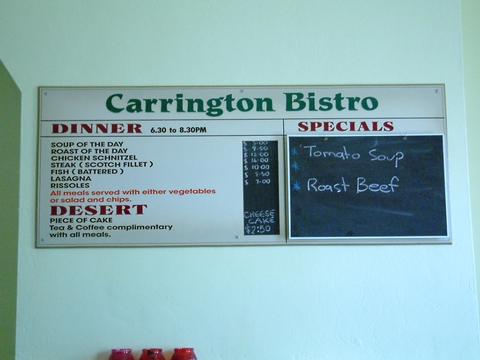 Carrington Bistro
DINNER 6.30 to 8.30PM
SOUP OF THE DAY
ROAST OF THE DAY
CHICKEN SCHNITZEL
STEAK ( SCOTCH FILLET )
FISH ( BATTERED )
LASAGNA
RISSOLES
All meals served with either vegetables
or salad and chips.
DESERT
PIECE OF CAKE
Tea & Coffee complimentary
with all meals.
CHEESE
CAKE
$2.50
SPECIALS
Tomato Soup
Roast Beef